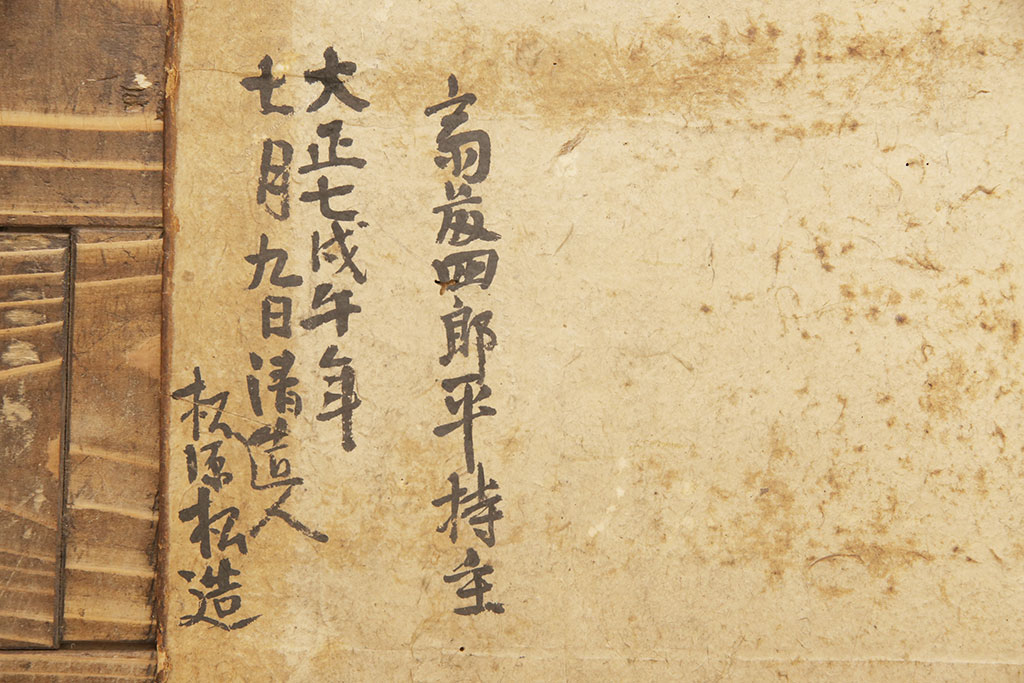 四郎平持主
大正七戊午年
七月九日清直人
松原松造